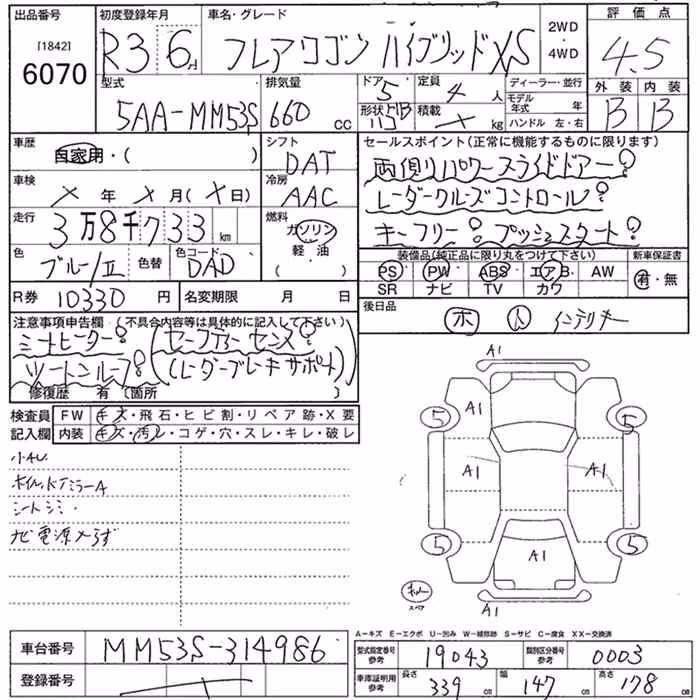 出品番号 初度登録年月 車名・グレード 評価点
[1842]
6070
R3 6月 フレアワゴン ハイブリッドXS 2WD・4WD 4.5
型式 排気量 ドア 定員 ディーラー・並行 外装 内装
5AA-MM53S 660cc 5 4人 モデル年式 年 B B
形状 積載 kg ハンドル 左・右
車歴 自家用・( ) シフト DAT
セールスポイント(正常に機能するものに限ります)
両側パワースライドドアー
車検 ×年×月(×日) 冷房 AAC
レーダークルーズコントロール
走行 3万8千733km 燃料 ガソリン 軽油 ( )
キーフリー プッシュスタート
色 ブルー/II 色替 色コード DAD
装備品(純正品に限り丸をつけて下さい) 新車保証書
PS PW ABS エアB AW 有・無
SR ナビ TV カワ
R券 10330円 名変期限 月 日
後日品 ホ 人 インテリキー
注意事項申告欄(不具合内容等は具体的に記入して下さい)
シートヒーター (セーフティーセンス)
ツートンルーフ (レーダーブレーキサポート)
修復歴 有(箇所 )
検査員 FW キズ・飛石・ヒビ割・リペア跡・X要
記入欄 内装 キズ・汚レ・コゲ・穴・スレ・キレ・破レ
小AU
ホイル、ドアミラーA
シートシミ・
ナビ電源入らず
A1
5 A1 5
A1 A1
5 A1 5
スペア A1
A-キズ E-エクボ U-凹み W-補修跡 S-サビ C-腐食 XX-交換済
車台番号 MM53S-314986
型式指定番号 参考 19043 類別区分番号 参考 0003
登録番号
車庫証明用 参考 長さ 339cm 幅 147cm 高さ 178cm